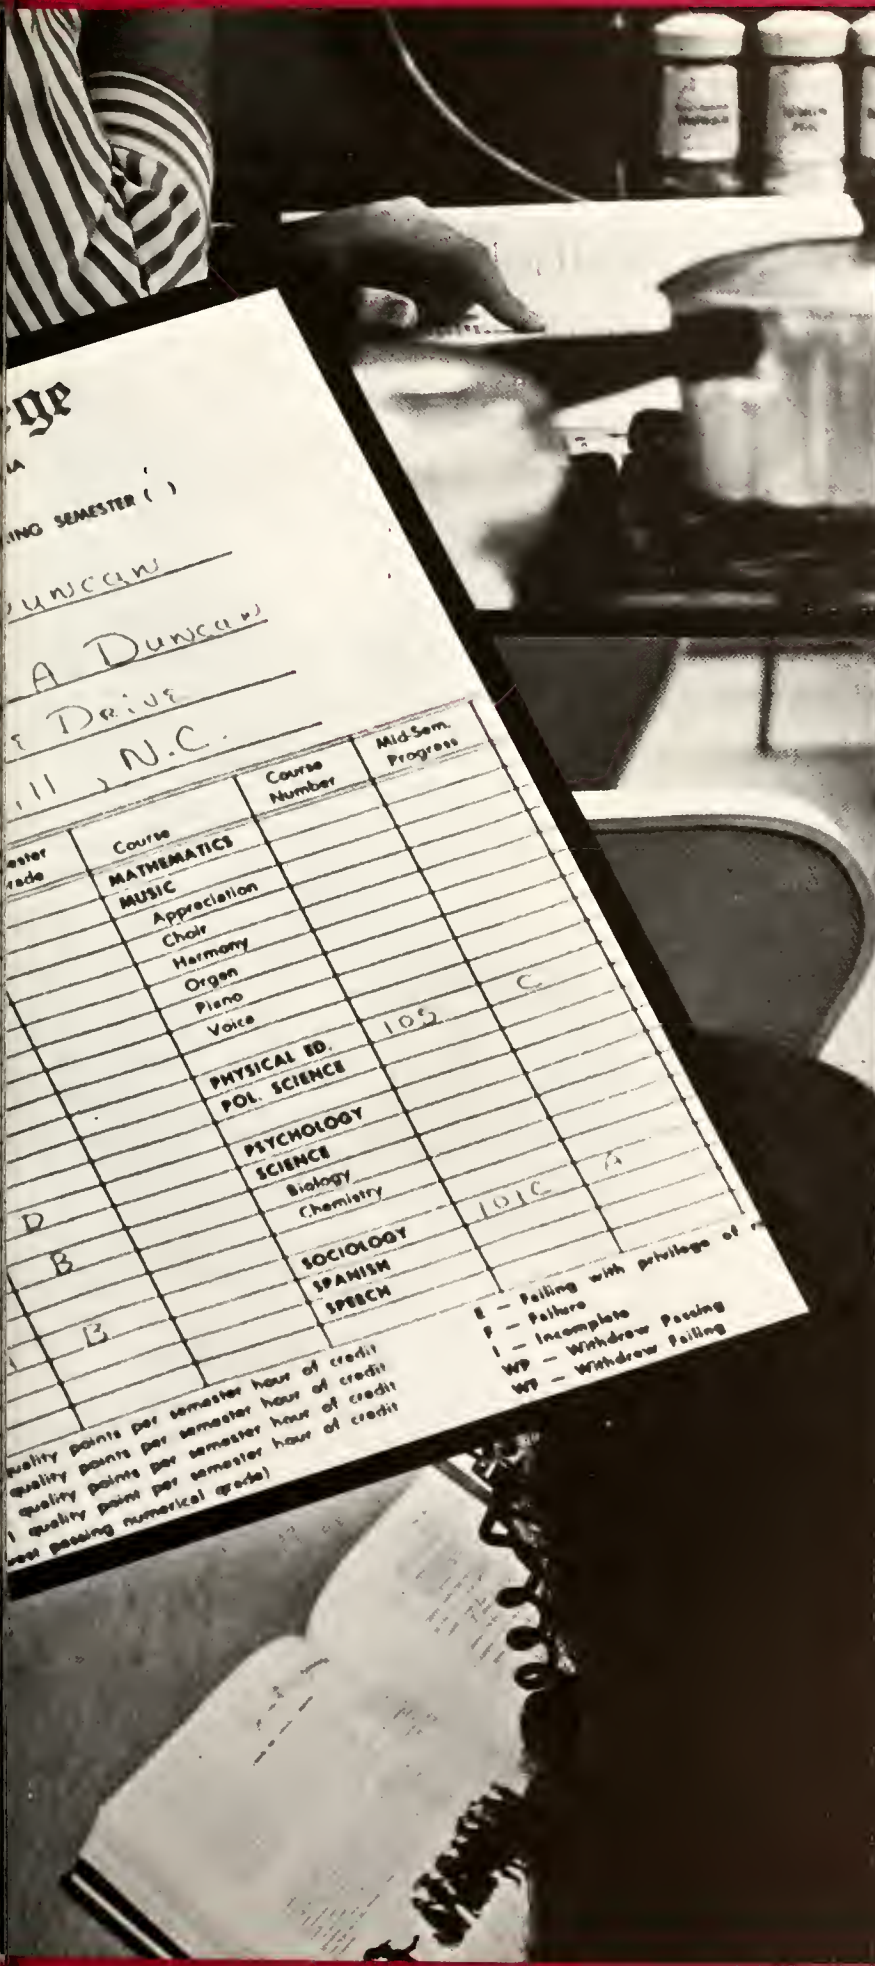 ge
IA
ING SEMESTER ( )
Duncan
A Duncan
e Drive
ill , N.C.
ester
rade
Course
Course
Number
Mid-Sem.
Progress
MATHEMATICS
MUSIC
Appreciation
Choir
Harmony
Organ
Piano
Voice
PHYSICAL ED. 105 C
POL. SCIENCE
PSYCHOLOGY
SCIENCE
Biology
Chemistry
D
B
SOCIOLOGY 101C A
SPANISH
SPEECH
B
uality points per semester hour of credit
quality points per semester hour of credit
quality points per semester hour of credit
1 quality point per semester hour of credit
west passing numerical grade)
E — Failing with privilege of r
F — Failure
I — Incomplete
WP — Withdrew Passing
WF — Withdrew Failing